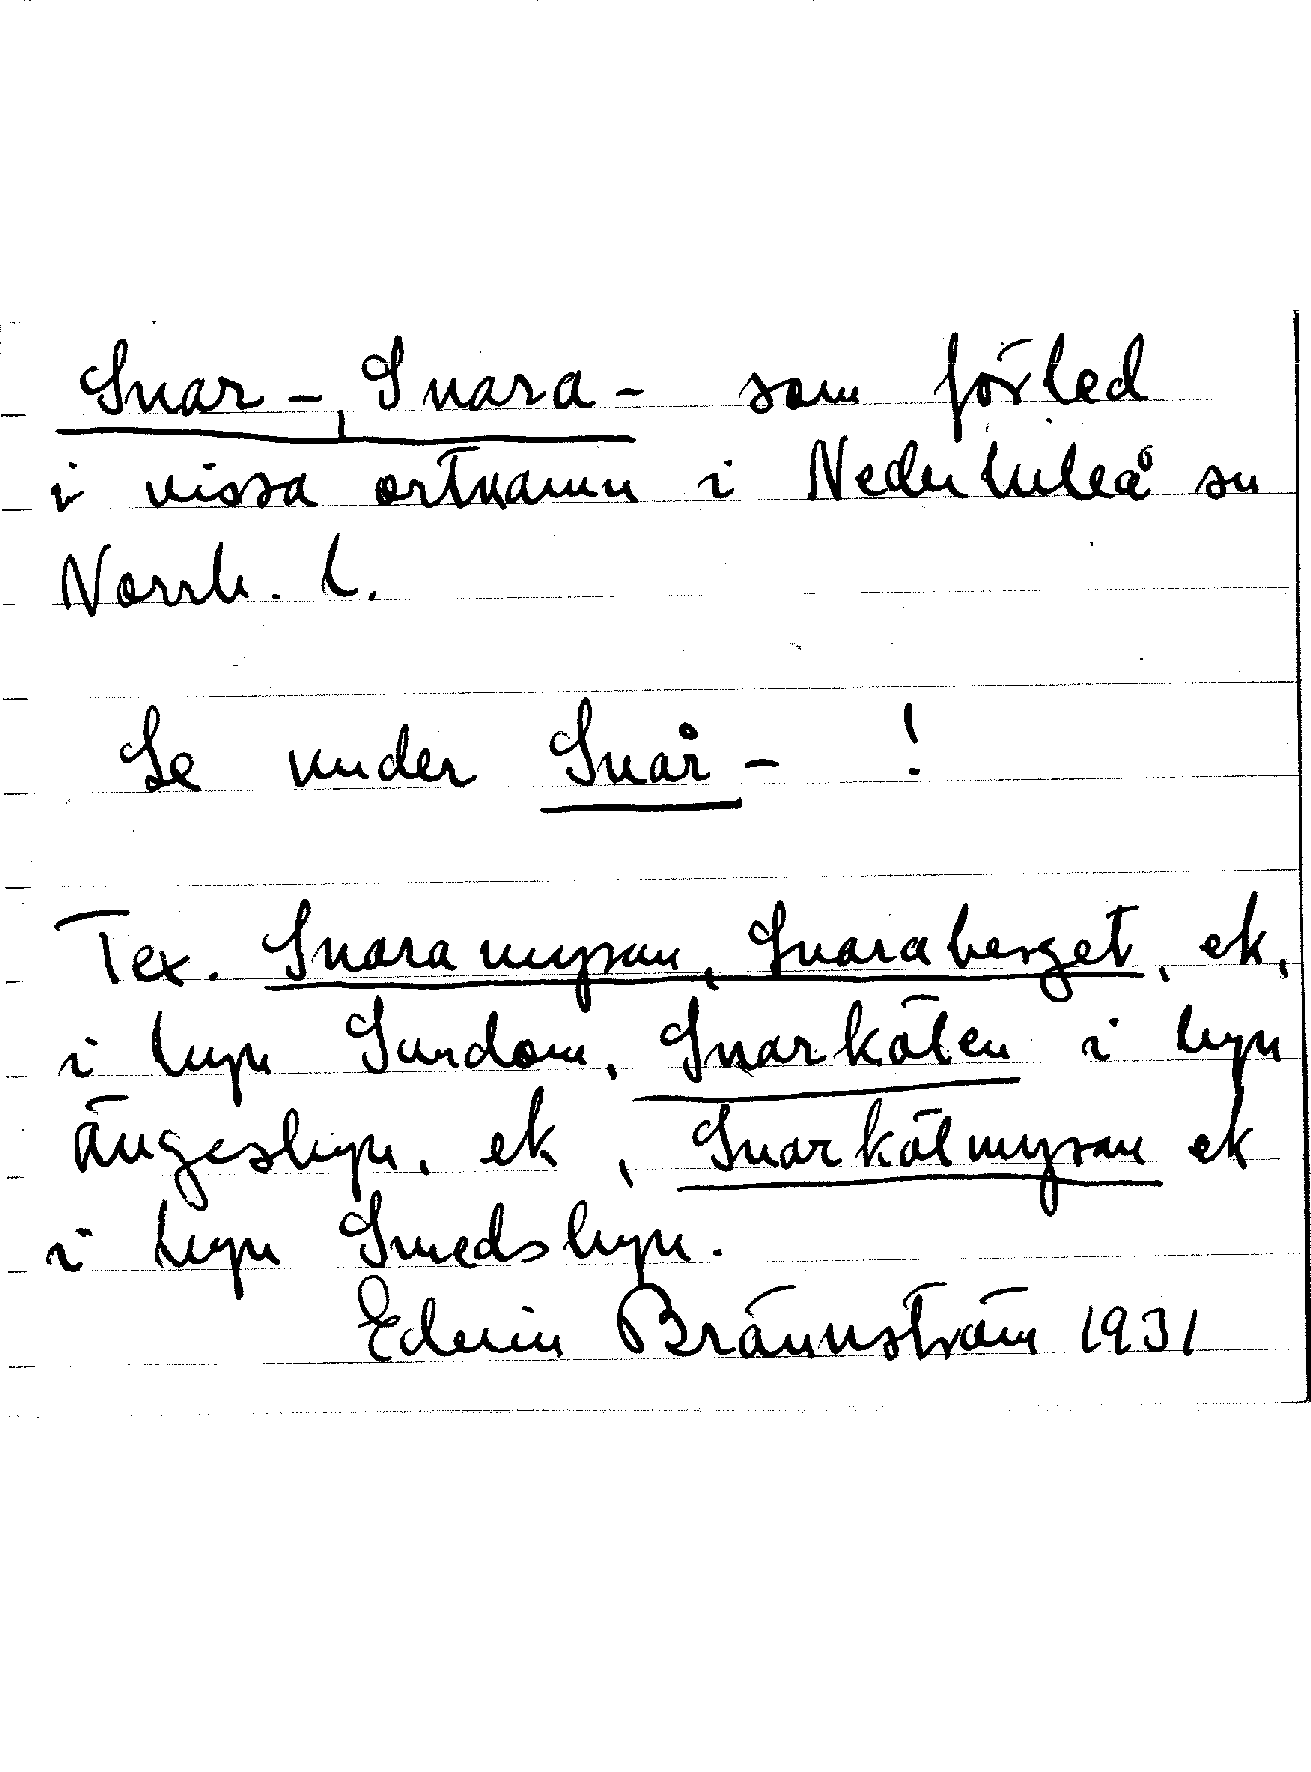 Snar-, Snara- som förled
i vissa ortnamn i Nederluleå sn
Norrb. l.
Se under Snår- !
Tex. Snaramyran, Snaraberget, ek,
i byn Sundom, Snarkölen i byn
Ängesbyn, ek, Snarkölmyran ek
i byn Smedsbyn.
Edwin Brännström 1931